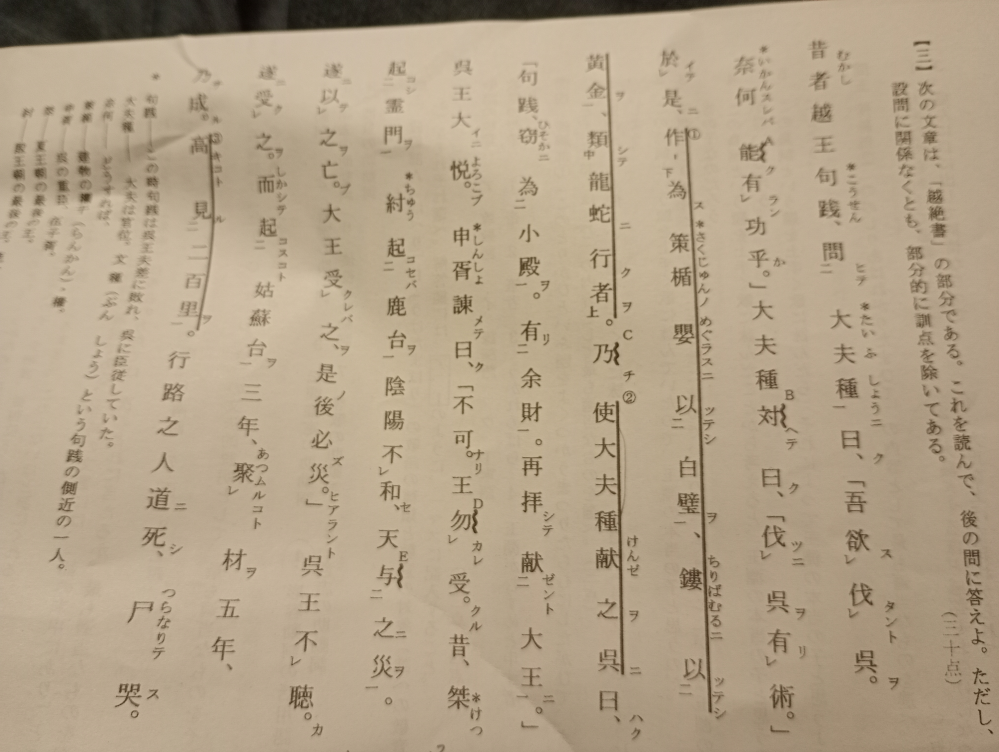 【三】次の文章は、「越絶書」の部分である。これを読んで、後の問に答えよ。ただし、
設問に関係なくとも、部分的に訓点を除いてある。
(三十点)
昔者越王句践、問大夫種曰、「吾欲伐呉。
奈何能有功乎。」大夫種対曰、「伐呉有術。」
於是、作為策楯嬰以白璧、鏤以
黄金、類龍蛇行者。乃使大夫種献之呉曰、
「句践、窃為小殿。有余財。再拝献大王。」
呉王大悦。申胥諫曰、「不可。王勿受。昔、桀
起霊門、紂起鹿台、陰陽不和、天与之災。
遂以之亡。大王受之、是後必災。」呉王不聴。
遂受之。而起姑蘇台、三年聚材五年、
乃成。高見二百里。行路之人道死、尸哭。
*句践――この時句践は呉王夫差に敗れ、呉に臣従していた。
大夫種――大夫は官位。文種(ぶんしょう)という句践の側近の一人。
奈何――どうすれば。
策楯――建物の欄干(らんかん)・横。
申胥――呉の重臣、伍子胥。
桀――夏王朝の最後の王。
紂――殷王朝の最後の王。